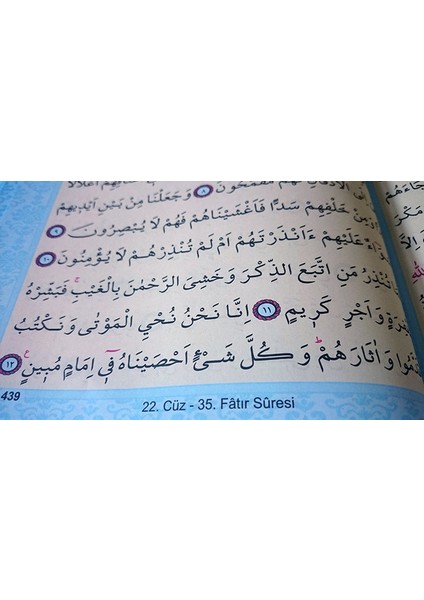 الْاَذْقَانِ مُقْمَحُونَ ٨ وَجَعَلْنَا مِنْ بَيْنِ اَيْدٖيهِمْ
خَلْفِهِمْ سَدًّا فَاَغْشَيْنَاهُمْ فَهُمْ لَا يُبْصِرُونَ ٩
عَلَيْهِمْ ءَاَنْذَرْتَهُمْ اَمْ لَمْ تُنْذِرْهُمْ لَا يُؤْمِنُونَ ١٠
تُنْذِرُ مَنِ اتَّبَعَ الذِّكْرَ وَخَشِىَ الرَّحْمٰنَ بِالْغَيْبِۚ فَبَشِّرْهُ
وَاَجْرٍ كَرٖيمٍ ١١ اِنَّا نَحْنُ نُحْيِ الْمَوْتٰى وَنَكْتُبُ
وَاٰثَارَهُمْؕ وَكُلَّ شَىْءٍ اَحْصَيْنَاهُ فٖٓى اِمَامٍ مُبٖينٍۚ ١٢
439
22. Cüz - 35. Fâtır Sûresi